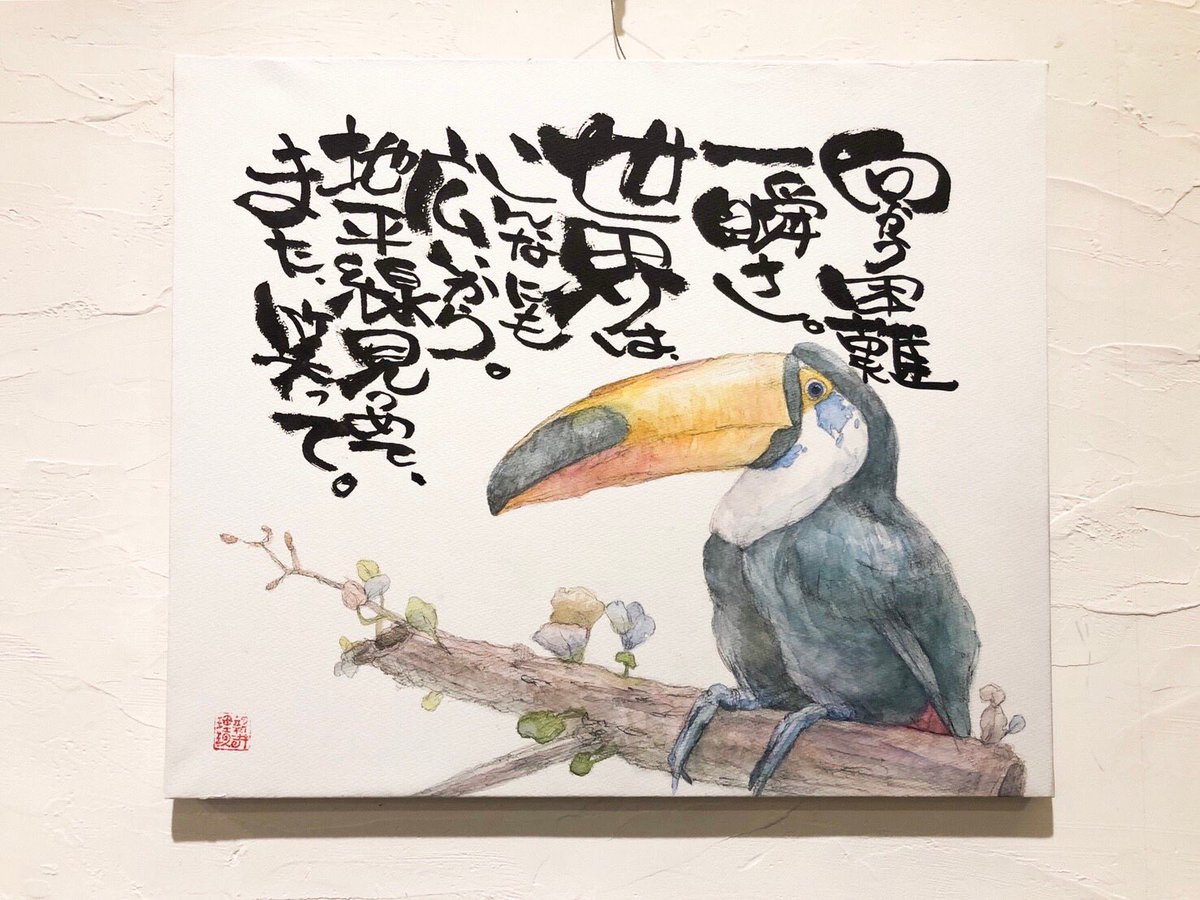 向かう困難
一瞬さ。
世界は、
こんなにも
広いから。
地平線見つめて、
また、笑って。